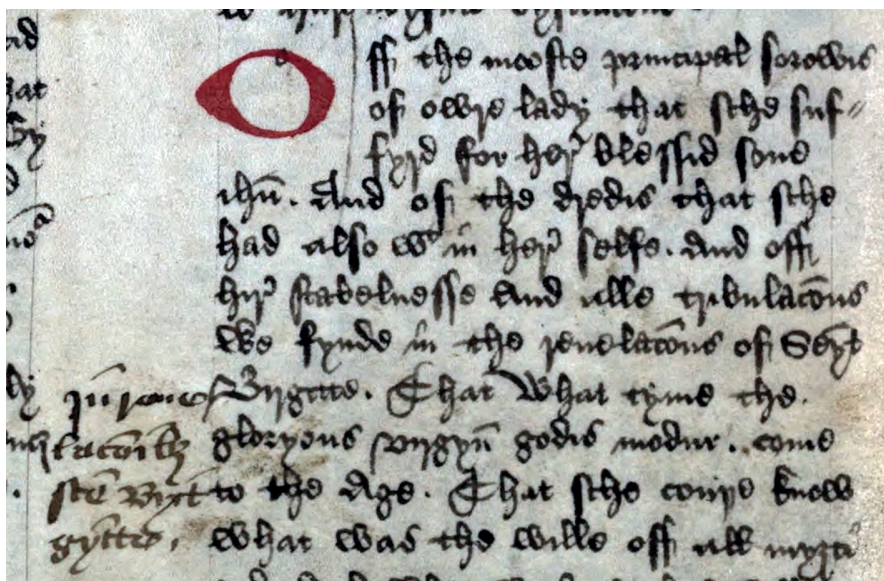 Off the mooste principal sorowis
of owre lady that sche suf=
fyrd for her blessid sone
ihū. And of the dredis that sche
had also wt in her selfe. And off
hir stabelnesse and alle tribulacōns
We fynde in the reuelacōns of Seyt
Birgitte. That what tyme the
gloryous virgyn̄ godis modur. come
to the Age. That sche coupe knew
what was the wille off all
in reue
lacōibȝ
scē Birt
gytte.